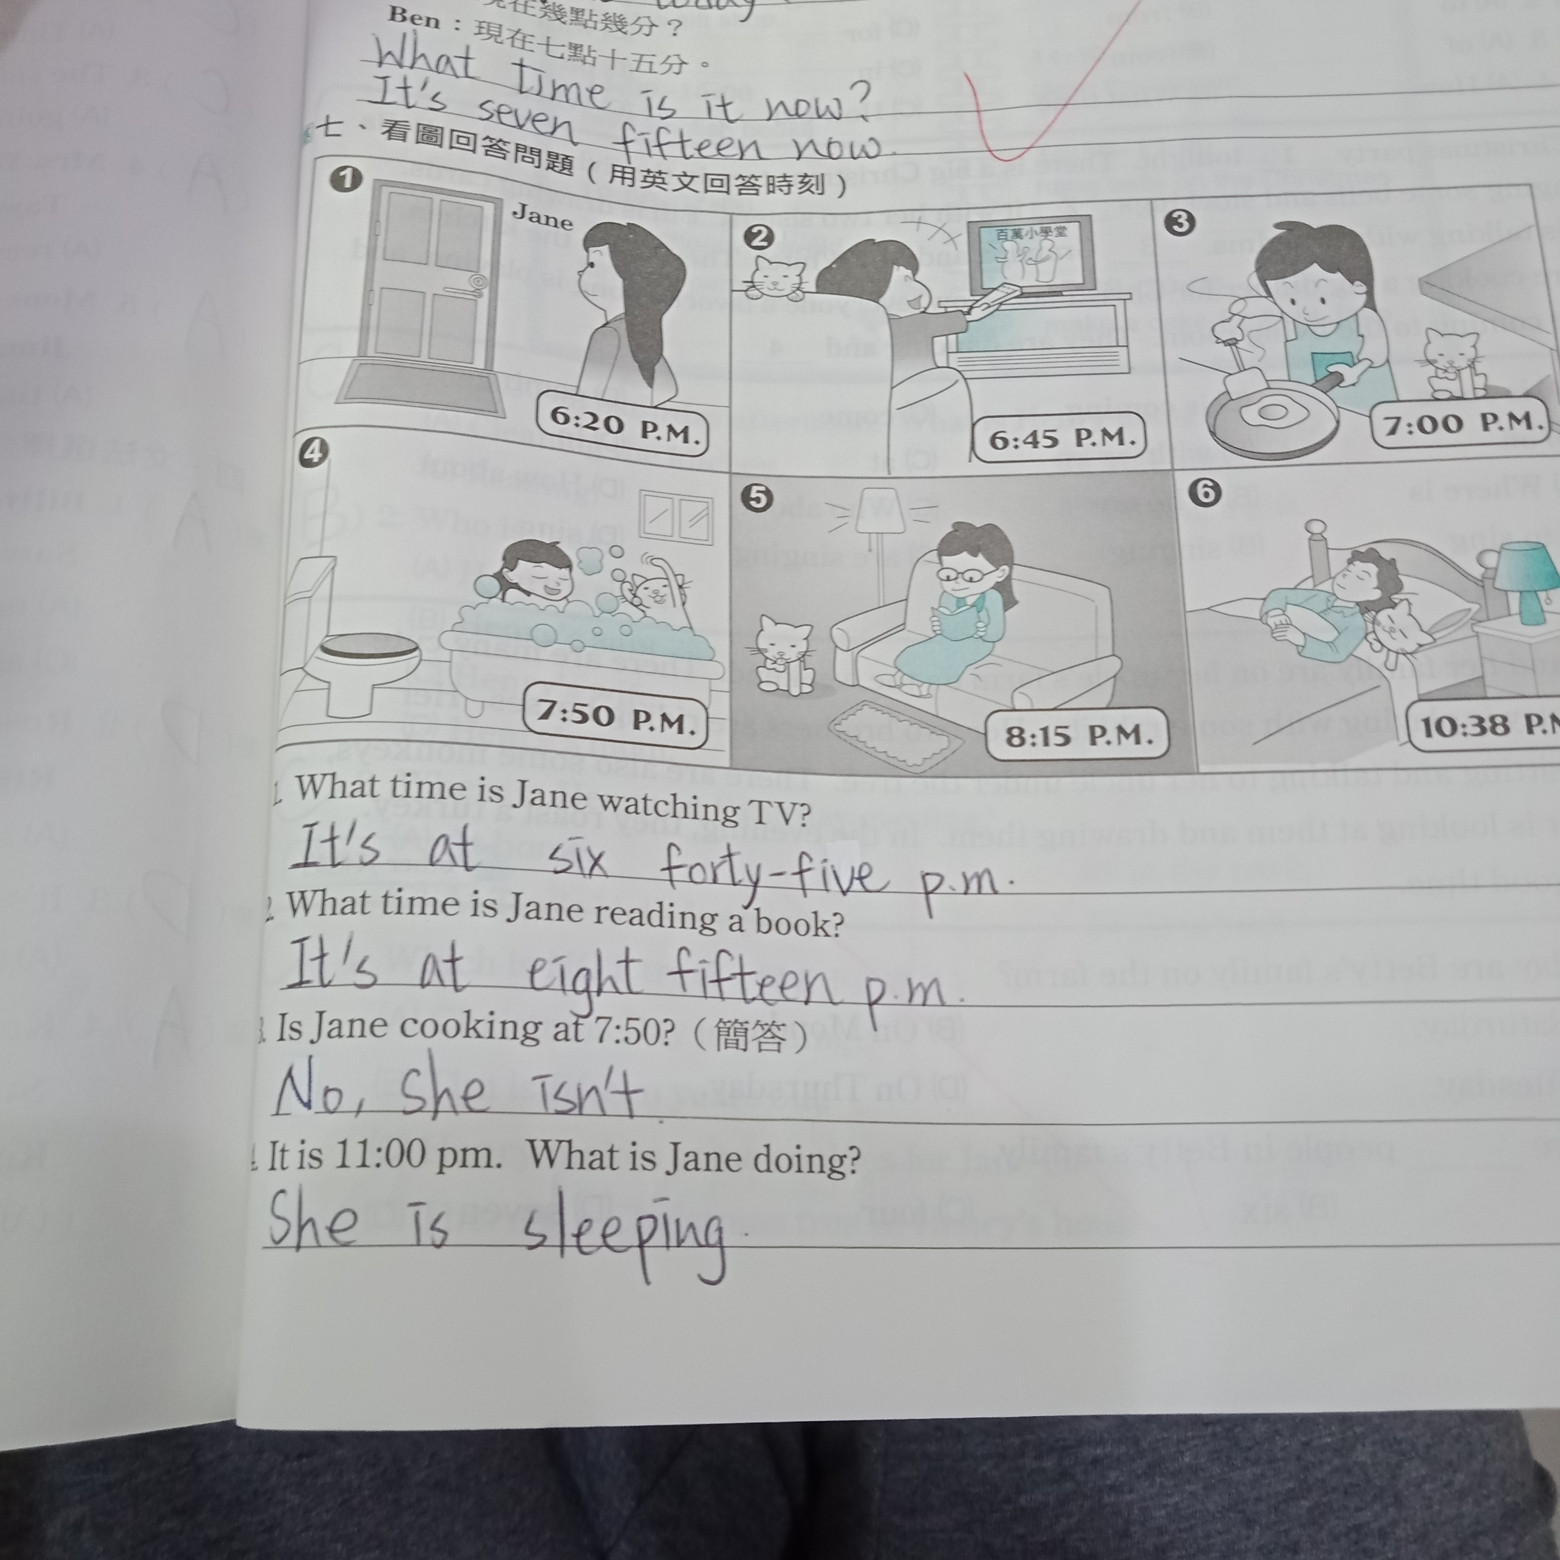 today
在幾點幾分？
Ben：現在七點十五分。
What time is it now?
It's seven fifteen now.
七、看圖回答問題（用英文回答時刻）
❶
Jane
6:20 P.M.
❷
百萬小學堂
6:45 P.M.
❸
7:00 P.M.
❹
7:50 P.M.
❺
8:15 P.M.
❻
10:38 P.M
What time is Jane watching TV?
It's at six forty-five p.m.
What time is Jane reading a book?
It's at eight fifteen p.m.
Is Jane cooking at 7:50?（簡答）
No, she isn't.
It is 11:00 pm. What is Jane doing?
She is sleeping.